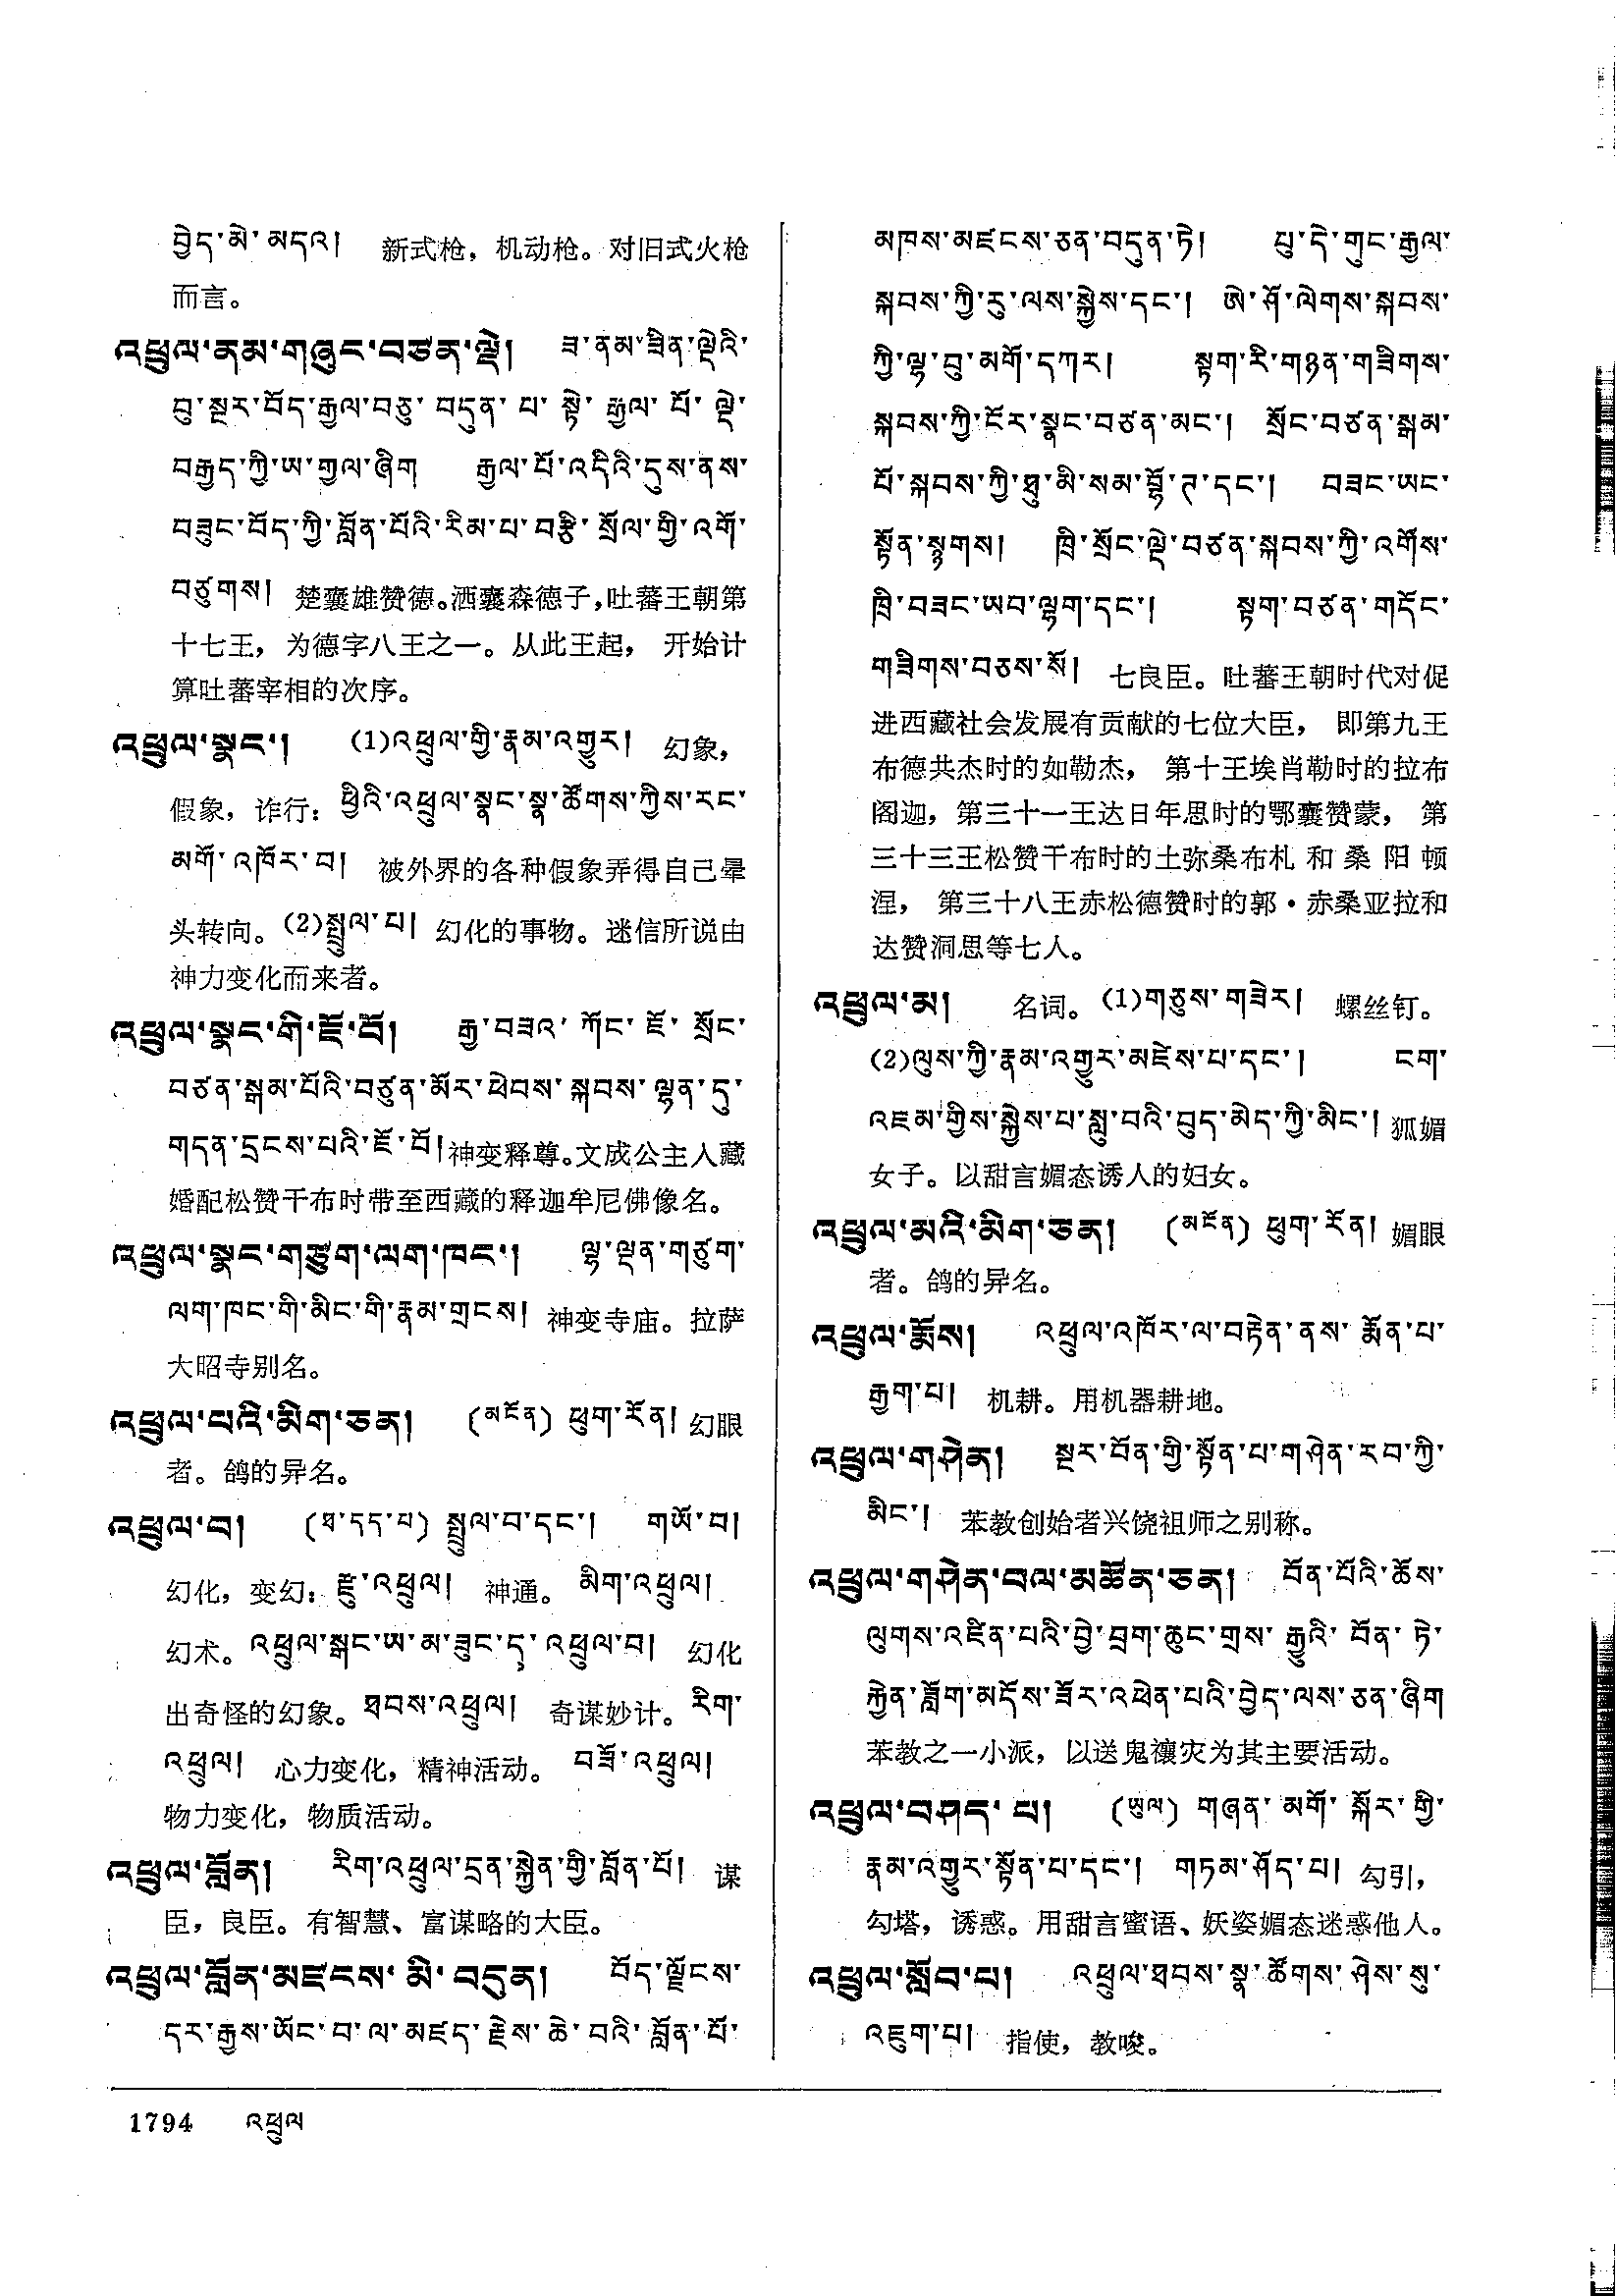 བྱེད་མེ་མདའ། 新式枪，机动枪。对旧式火枪
而言。
འཕྲུལ་ནམ་གཞུང་བཙན་ལྡེ། ཟ་ནམ་ཟིན་ལྡེའི་
བུ་སྔར་བོད་རྒྱལ་བཅུ་བདུན་པ་སྟེ་རྒྱལ་པོ་ལྡེ་
བརྒྱད་ཀྱི་ཨ་གྱལ་ཞིག རྒྱལ་པོ་འདིའི་དུས་ནས་
བཟུང་བོད་ཀྱི་བློན་པོའི་རིམ་པ་བརྩི་སྲོལ་གྱི་འགོ་
བཙུགས། 楚襄雄赞德。洒襄森德子，吐蕃王朝第
十七王，为德字八王之一。从此王起，开始计
算吐蕃宰相的次序。
འཕྲུལ་སྣང་། (1)འཕྲུལ་གྱི་རྣམ་འགྱུར། 幻象，
假象，诈行：ཕྱིའི་འཕྲུལ་སྣང་སྣ་ཚོགས་ཀྱིས་རང་
མགོ་འཁོར་བ། 被外界的各种假象弄得自己晕
头转向。(2)སྤྲུལ་པ། 幻化的事物。迷信所说由
神力变化而来者。
འཕྲུལ་སྣང་གི་ཇོ་བོ། རྒྱ་བཟའ་ཀོང་ཇོ་སྲོང་
བཙན་སྒམ་པོའི་བཙུན་མོར་ཕེབས་སྐབས་ལྷན་དུ་
གདན་དྲངས་པའི་ཇོ་བོ། 神变释尊。文成公主人藏
婚配松赞干布时带至西藏的释迦牟尼佛像名。
འཕྲུལ་སྣང་གཙུག་ལག་ཁང་། ལྷ་ལྡན་གཙུག་
ལག་ཁང་གི་མིང་གི་རྣམ་གྲངས། 神变寺庙。拉萨
大昭寺别名。
འཕྲུལ་པའི་མིག་ཅན། (མངོན) ཕུག་རོན། 幻眼
者。鸽的异名。
འཕྲུལ་བ། (ཐ་དད་པ) སྤྲུལ་བ་དང་། གཡོ་བ།
幻化，变幻：རྫུ་འཕྲུལ། 神通。མིག་འཕྲུལ།
幻术。འཕྲུལ་སྣང་ཨ་མ་ཟུང་དུ་འཕྲུལ་བ། 幻化
出奇怪的幻象。ཐབས་འཕྲུལ། 奇谋妙计。རིག་
འཕྲུལ། 心力变化，精神活动。བཟོ་འཕྲུལ།
物力变化，物质活动。
འཕྲུལ་བློན། རིག་འཕྲུལ་དྲན་སྐྱེན་གྱི་བློན་པོ། 谋
臣，良臣。有智慧、富谋略的大臣。
འཕྲུལ་བློན་མཛངས་མི་བདུན། བོད་ལྗོངས་
དར་རྒྱས་ཡོང་བ་ལ་མཛད་རྗེས་ཆེ་བའི་བློན་པོ་
མཁས་མཛངས་ཅན་བདུན་ཏེ། པུ་དེ་གུང་རྒྱལ་
སྐབས་ཀྱི་རུ་ལས་སྐྱེས་དང་། ཨེ་ཤོ་ལེགས་སྐབས་
ཀྱི་ལྷ་བུ་མགོ་དཀར། སྟག་རི་གཉན་གཟིགས་
སྐབས་ཀྱི་ངོར་སྣང་བཙན་མང་། སྲོང་བཙན་སྒམ་
པོ་སྐབས་ཀྱི་ཐུ་མི་སམ་བྷོ་ཊ་དང་། བཟང་ཡང་
སྟོན་སྙགས། ཁྲི་སྲོང་ལྡེ་བཙན་སྐབས་ཀྱི་འགོས་
ཁྲི་བཟང་ཡབ་ལྷག་དང་། སྟག་བཙན་གདོང་
གཟིགས་བཅས་སོ། 七良臣。吐蕃王朝时代对促
进西藏社会发展有贡献的七位大臣，即第九王
布德共杰时的如勒杰，第十王埃肖勒时的拉布
阁迦，第三十一王达日年思时的鄂囊赞蒙，第
三十三王松赞干布时的土弥桑布札和桑阳顿
涅，第三十八王赤松德赞时的郭·赤桑亚拉和
达赞洞思等七人。
འཕྲུལ་མ། 名词。(1)གཅུས་གཟེར། 螺丝钉。
(2)ལུས་ཀྱི་རྣམ་འགྱུར་མཛེས་པ་དང་། ངག་
འཇམ་གྱིས་སྐྱེས་པ་སླུ་བའི་བུད་མེད་ཀྱི་མིང་། 狐媚
女子。以甜言媚态诱人的妇女。
འཕྲུལ་མའི་མིག་ཅན། (མངོན) ཕུག་རོན། 媚眼
者。鸽的异名。
འཕྲུལ་རྨོས། འཕྲུལ་འཁོར་ལ་བརྟེན་ནས་རྨོན་པ་
རྒྱག་པ། 机耕。用机器耕地。
འཕྲུལ་གཤེན། སྔར་བོན་གྱི་སྟོན་པ་གཤེན་རབ་ཀྱི་
མིང་། 苯教创始者兴饶祖师之别称。
འཕྲུལ་གཤེན་བལ་མཚོན་ཅན། བོན་པོའི་ཆོས་
ལུགས་འཛིན་པའི་བྱེ་བྲག་ཆུང་གྲས་རྒྱུའི་བོན་ཏེ་
རྐྱེན་ཟློག་མདོས་ཟོར་འཕེན་པའི་བྱེད་ལས་ཅན་ཞིག
苯教之一小派，以送鬼禳灾为其主要活动。
འཕྲུལ་བཤད་པ། (ཡུལ) གཞན་མགོ་སྐོར་གྱི་
རྣམ་འགྱུར་སྟོན་པ་དང་། གཏམ་ཤོད་པ། 勾引，
勾塔，诱惑。用甜言蜜语、妖姿媚态迷惑他人。
འཕྲུལ་སློབ་པ། འཕྲུལ་ཐབས་སྣ་ཚོགས་ཤེས་སུ་
འཇུག་པ། 指使，教唆。
1794 འཕྲུལ